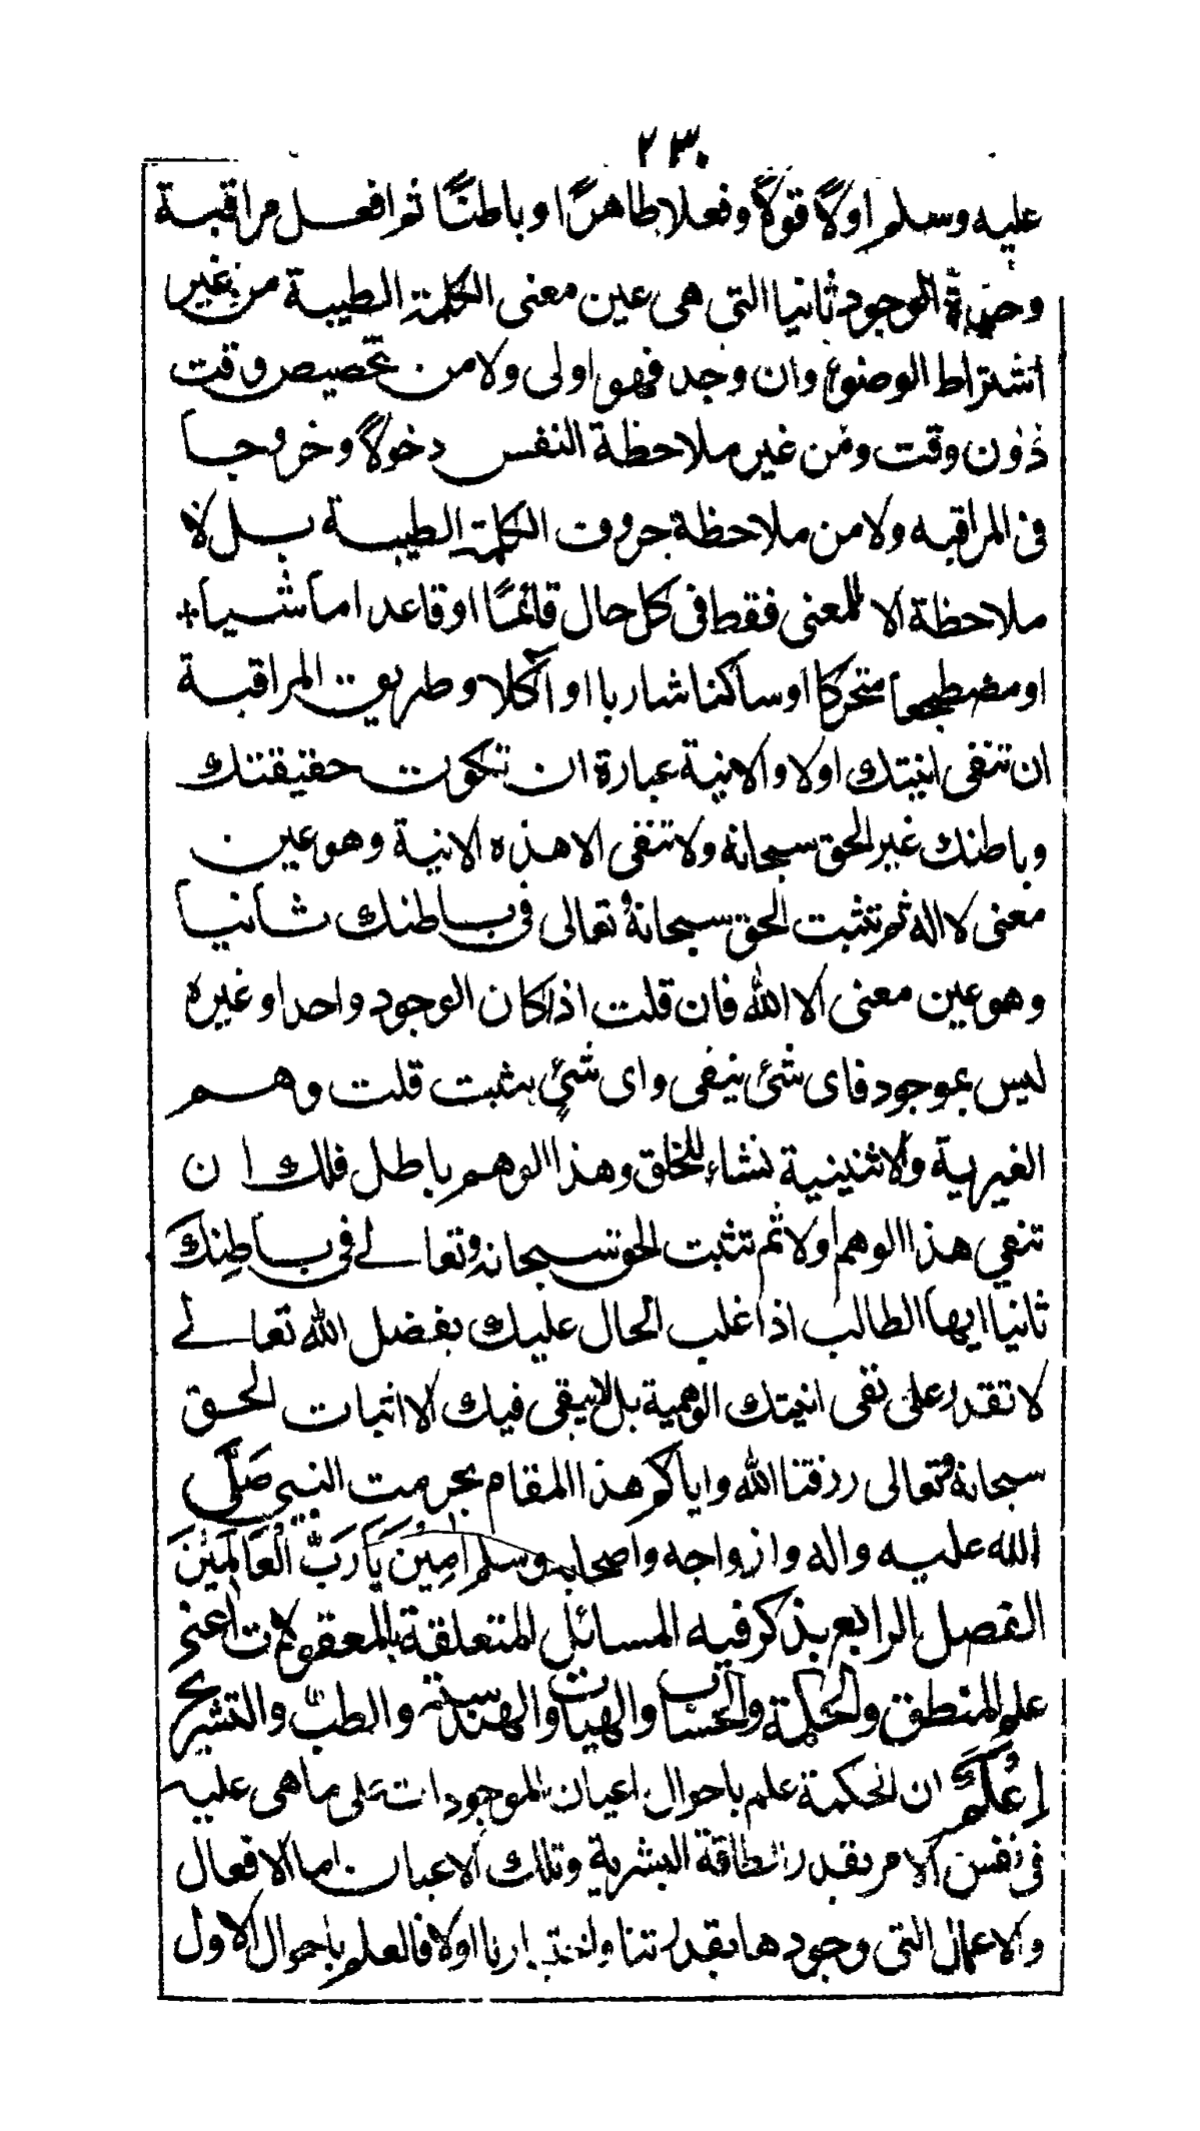 ٢٣٠
عليه وسلم اولًا قولًا وفعلا ظاهرًا وباطنًا ثم افعل مراقبة
وحدة الوجود ثانيا التى هى عين معنى الكلمة الطيبة من غير
اشتراط الوضوء وان وجد فهو اولى ولا من تخصيص وقت
دون وقت ومن غير ملاحظة النفس دخولًا وخروجا
فى المراقبه ولا من ملاحظة حروف الكلمة الطيبة بل لا
ملاحظة الا للمعنى فقط فى كل حال قائمًا او قاعدا ماشيا
او مضطجعا متحركا او ساكنا شاربا او آكلا وطريق المراقبة
ان تنفى انيتك اولا والانية عبارة ان تكون حقيقتك
وباطنك غير الحق سبحانه ولا تنفى الا هذه الانية وهو عين
معنى لا اله ثم تثبت الحق سبحانه وتعالى فى باطنك ثانيا
وهو عين معنى الا الله فان قلت اذا كان الوجود واحدا وغيره
ليس بموجود فاى شئ ينفى واى شئ يثبت قلت وهم
الغيرية والاثنينية نشاء للخلق وهذا الوهم باطل فلك ان
تنفي هذا الوهم اولا ثم تثبت الحق سبحانه وتعالے فى باطنك
ثانيا ايها الطالب اذا غلب الحال عليك بفضل الله تعالے
لا تقدر على نفى انيتك الوهمية بل لا يبقى فيك الا اثبات الحق
سبحانه وتعالى رزقنا الله واياكم هذا المقام بحرمت النبي صَلَّى
الله عليه واله وازواجه واصحابه وسلم اٰمِيْنَ يَا رَبَّ الْعَالَمِيْنَ
الفصل الرابع يذكر فيه المسائل المتعلقة بالمعقولات اعنى
علم المنطق والحكمة والحساب والهيات والهندسة والطب والتشريح
اِعْلَمْ ان الحكمة علم باحوال اعيان الموجودات على ما هى عليه
فى نفس الامر بقدر الطاقة البشرية وتلك الاعيان اما الافعال
والاعمال التى وجودها بقدرتنا واختيارنا اولا فالعلم باحوال الاول